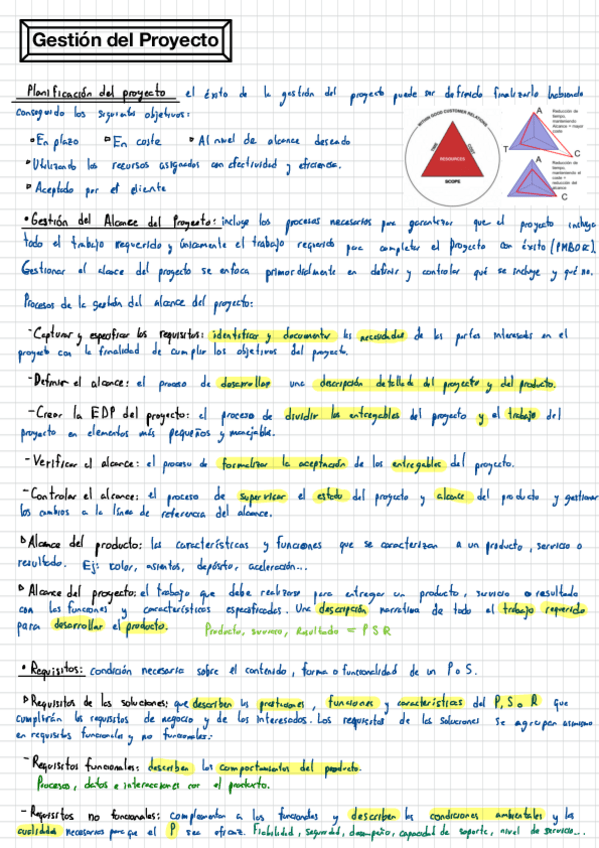 Gestión del Proyecto
Planificación del proyecto el éxito de la gestión del proyecto puede ser definido finalizarlo habiendo
conseguido los siguientes objetivos:
En plazo En coste Al nivel de alcance deseado
Utilizando los recursos asignados con efectividad y eficiencia.
Aceptado por el cliente
WITHIN GOOD CUSTOMER RELATIONS
TIME
COST
RESOURCES
SCOPE
A
T
C
Reducción de
tiempo,
manteniendo
Alcance = mayor
coste
A
C
Reducción de
tiempo,
manteniendo el
coste =
reducción del
alcance
• Gestión del Alcance del Proyecto: incluye los procesos necesarios para garantizar que el proyecto incluye
todo el trabajo requerido y únicamente el trabajo requerido para completar el proyecto con éxito (PMBOK).
Gestionar el alcance del proyecto se enfoca primordialmente en definir y controlar qué se incluye y qué no.
Procesos de la gestión del alcance del proyecto:
- Capturar y especificar los requisitos: identificar y documentar las necesidades de las partes interesadas en el
proyecto con la finalidad de cumplir los objetivos del proyecto.
- Definir el alcance: el proceso de desarrollar una descripción detallada del proyecto y del producto.
- Crear la EDP del proyecto: el proceso de dividir los entregables del proyecto y el trabajo del
proyecto en elementos más pequeños y manejable.
- Verificar el alcance: el proceso de formalizar la aceptación de los entregables del proyecto.
- Controlar el alcance: el proceso de supervisar el estado del proyecto y alcance del producto y gestionar
los cambios a la línea de referencia del alcance.
Alcance del producto: las características y funciones que se caracterizan a un producto, servicio o
resultado. Ej: color, asientos, depósito, aceleración...
Alcance del proyecto: el trabajo que debe realizarse para entregar un producto, servicio o resultado
con las funciones y características especificadas. Una descripción narrativa de todo el trabajo requerido
para desarrollar el producto. Producto, servicio, Resultado = P S R
• Requisitos: condición necesaria sobre el contenido, forma o funcionalidad de un P o S.
Requisitos de las soluciones: que describen las prestaciones, funciones y características del P, S o R que
cumplirán los requisitos de negocio y de los interesados. Los requisitos de las soluciones se agrupan asimismo
en requisitos funcionales y no funcionales:
- Requisitos funcionales: describen los comportamientos del producto.
Procesos, datos e interacciones con el producto.
- Requisitos no funcionales: complementan a los funcionales y describen las condiciones ambientales y las
cualidades necesarias para que el P sea eficaz. Fiabilidad, seguridad, desempeño, capacidad de soporte, nivel de servicio...